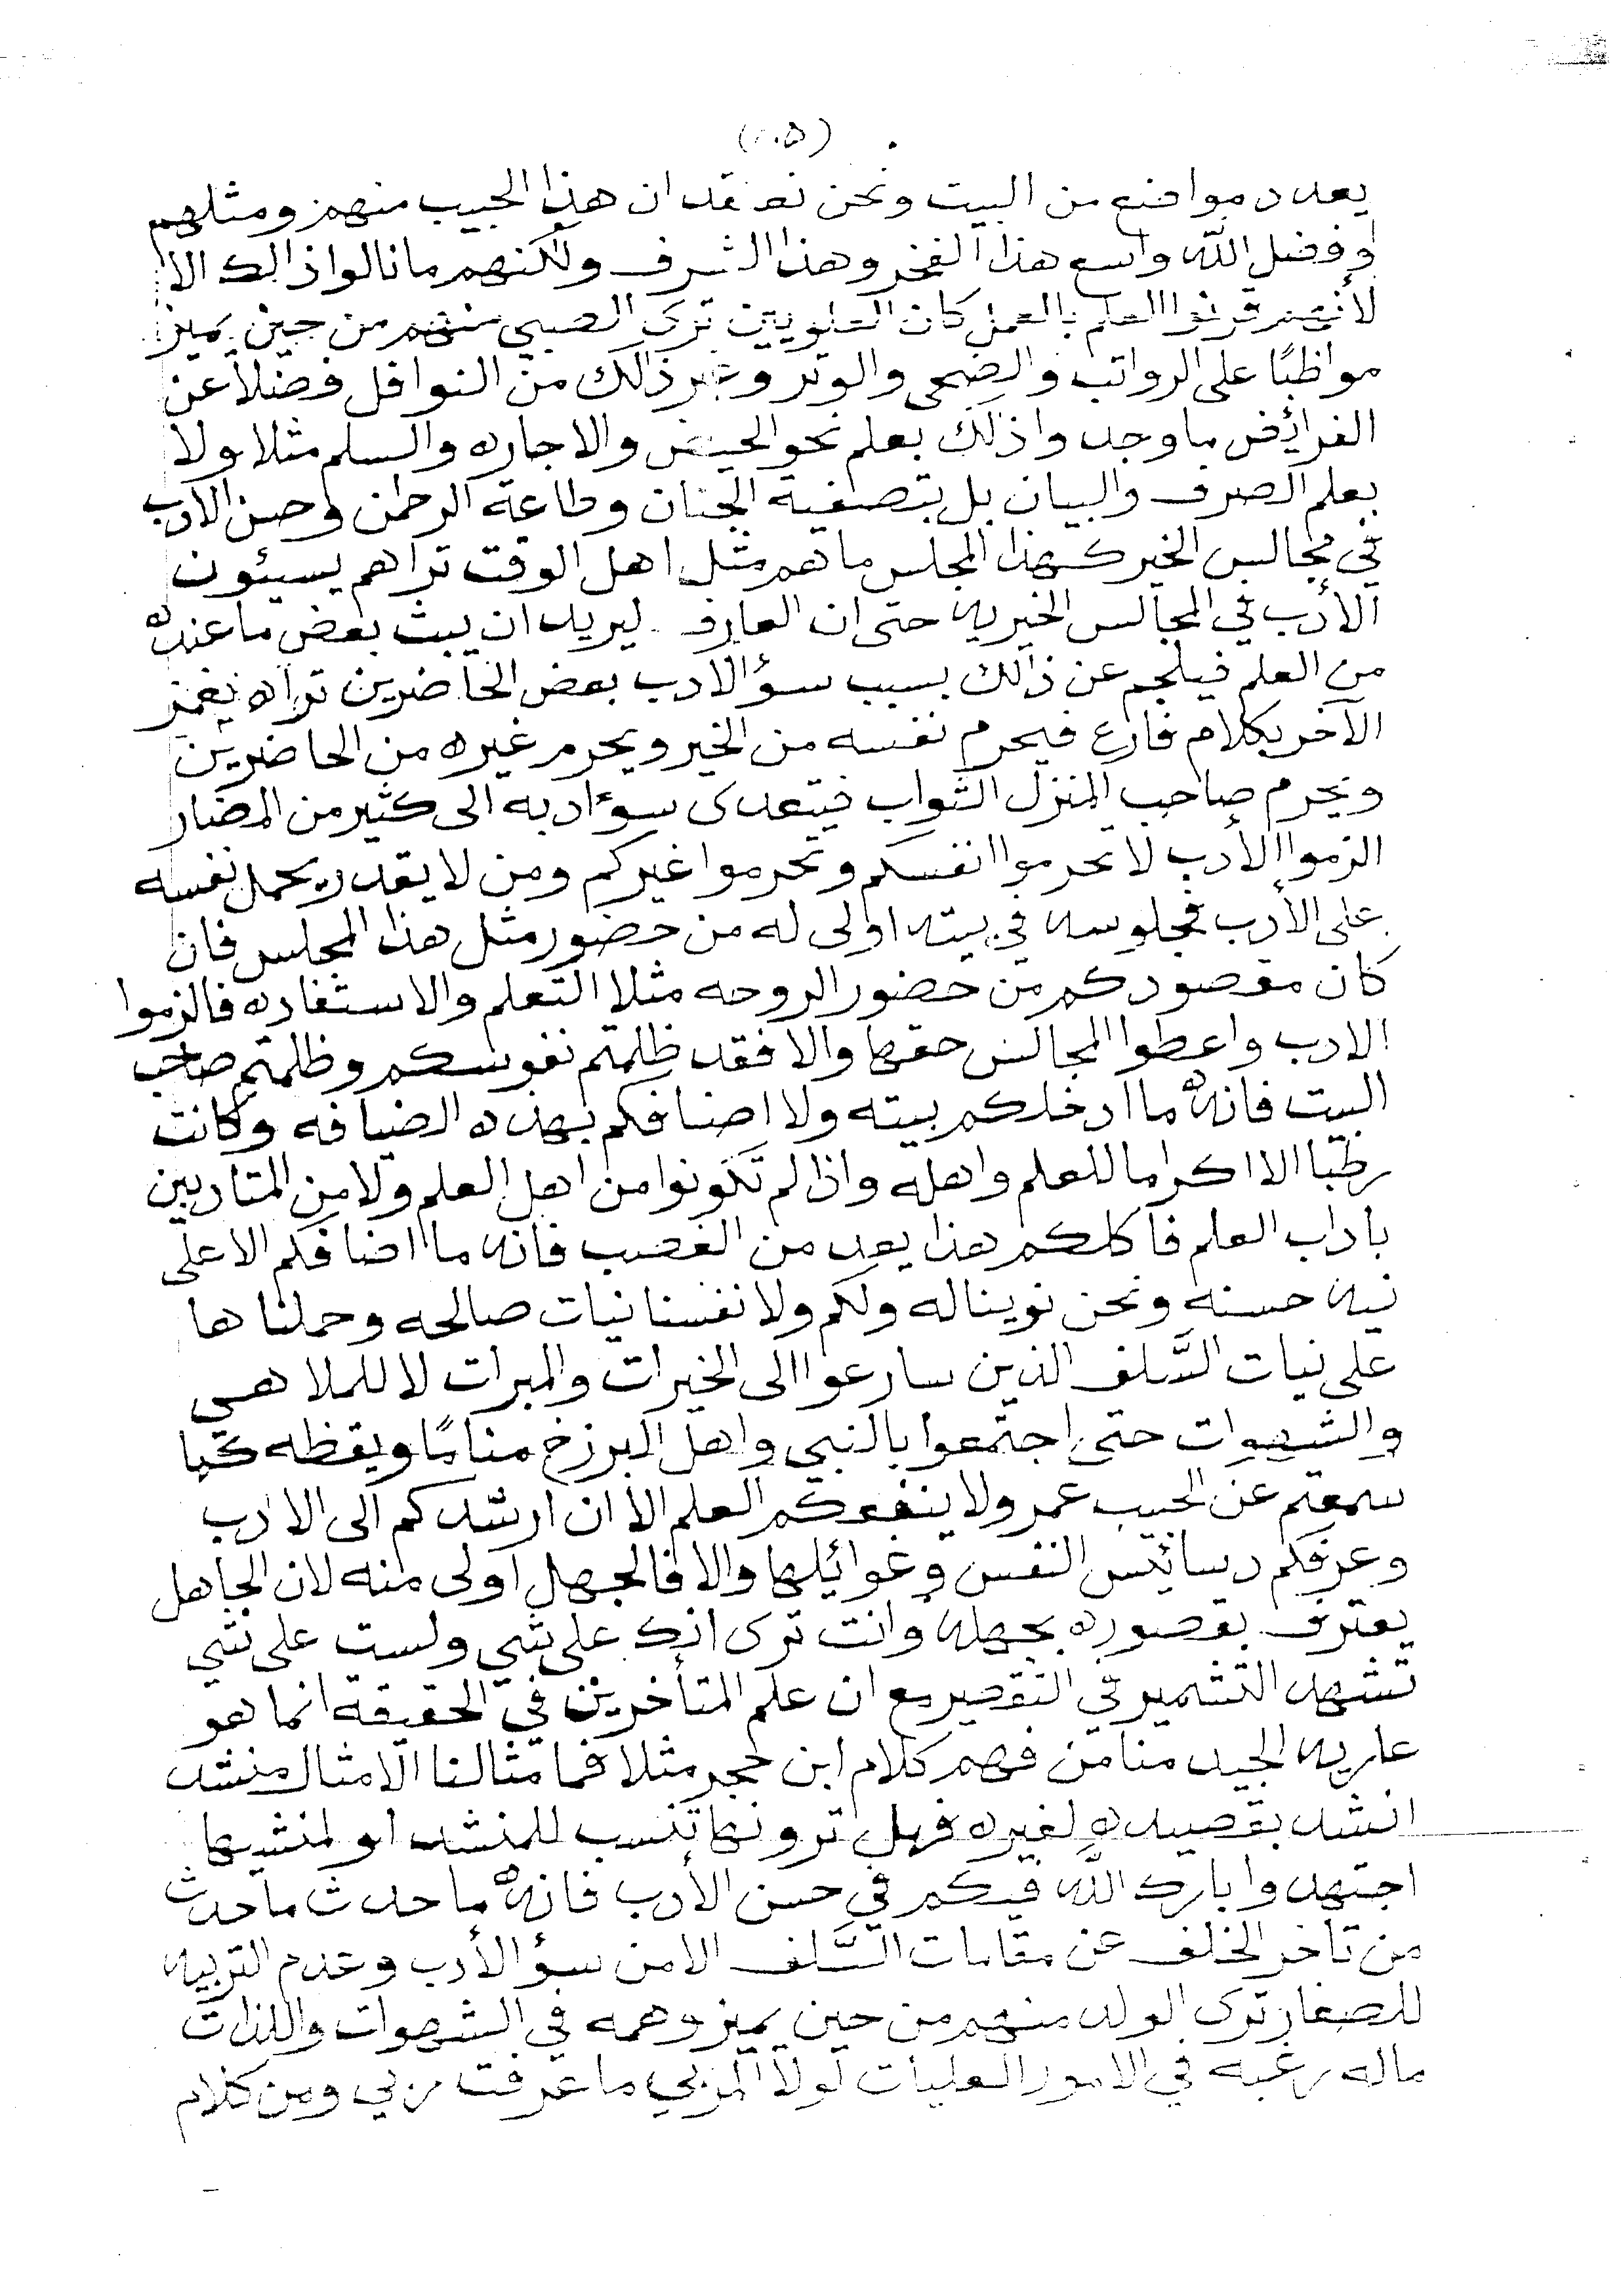 (٠٥)
يعدد مواضع من البيت ونحن نعتقد ان هذا الحبيب منهم ومثلهم
وفضل الله واسع هذا الفخر وهذا الشرف ولكنهم ما نالوا ذالك الا
لأنهم قرنوا العلم بالعمل كان العلويين ترى الصبي منهم من حين يميز
مواظبًا على الرواتب والضحى والوتر وغير ذالك من النوافل فضلا عن
الفرائض ما وجدوا ذلك بعلم نحو الحيض والاجاره والسلم مثلا ولا
بعلم الصرف والبيان بل بتصفية الجنان وطاعة الرحمن وحسن الادب
في مجالس الخير كهذا المجلس ما هم مثل اهل الوقت تراهم يسيئون
الأدب في المجالس الخيريه حتى ان العارف ليريد ان يبث بعض ما عنده
من العلم فيلجم عن ذالك بسبب سؤ الادب بعض الحاضرين تراه يغمز
الآخر بكلام فارغ فيحرم نفسه من الخير ويحرم غيره من الحاضرين
ويحرم صاحب المنزل الثواب فيتعدى سؤ ادبه الى كثير من المضار
الزموا الأدب لا تحرموا انفسكم وتحرموا غيركم ومن لا يقدر يحمل نفسه
على الأدب فجلوسه في بيته اولى له من حضور مثل هذا المجلس فان
كان مقصودكم من حضور الروحه مثلا التعلم والاستفاده فالزموا
الادب واعطوا المجالس حقها والا فقد ظلمتم نفوسكم وظلمتم صاحب
البيت فانه ما ادخلكم بيته ولا اضافكم بهذه الضيافه وكانت
رطبا الا اكراما للعلم واهله واذا لم تكونوا من اهل العلم ولا من المتادبين
بآداب العلم فأكلكم هذا يعد من الغصب فانه ما اضافكم الا على
نيه حسنه ونحن نوينا له ولكم ولانفسنا نيات صالحه وحملناها
على نيات السَّلف الذين سارعوا الى الخيرات والمبرات لا للملاهي
والشهوات حتى اجتمعوا بالنبي واهل البرزخ منامًا ويقظه كما
سمعتم عن الحبيب عمر ولا ينفعكم العلم الا ان ارشدكم الى الادب
وعرفكم دسائس النفس وغوائلها والا فالجهل اولى منه لان الجاهل
يعترف بقصوره بجهله وانت ترى انك على شي ولست على شي
تشهد التشمير في التقصير مع ان علم المتأخرين في الحقيقة انما هو
عاريه الجيد منا من فهم كلام ابن حجر مثلا فما مثالنا الا مثال منشد
انشد بقصيده لغيره فهل ترونها تنسب للمنشد او لمنشيها
اجتهدوا بارك الله فيكم في حسن الأدب فانه ما حدث ما حدث
من تأخر الخلف عن مقامات السَّلف الا من سؤ الأدب وعدم التربيه
للصغار ترى الولد منهم من حين يميز وهمه في الشهوات واللذات
ماله رغبه في الامور العليات لولا المربي ما عرفت ربي ومن كلام